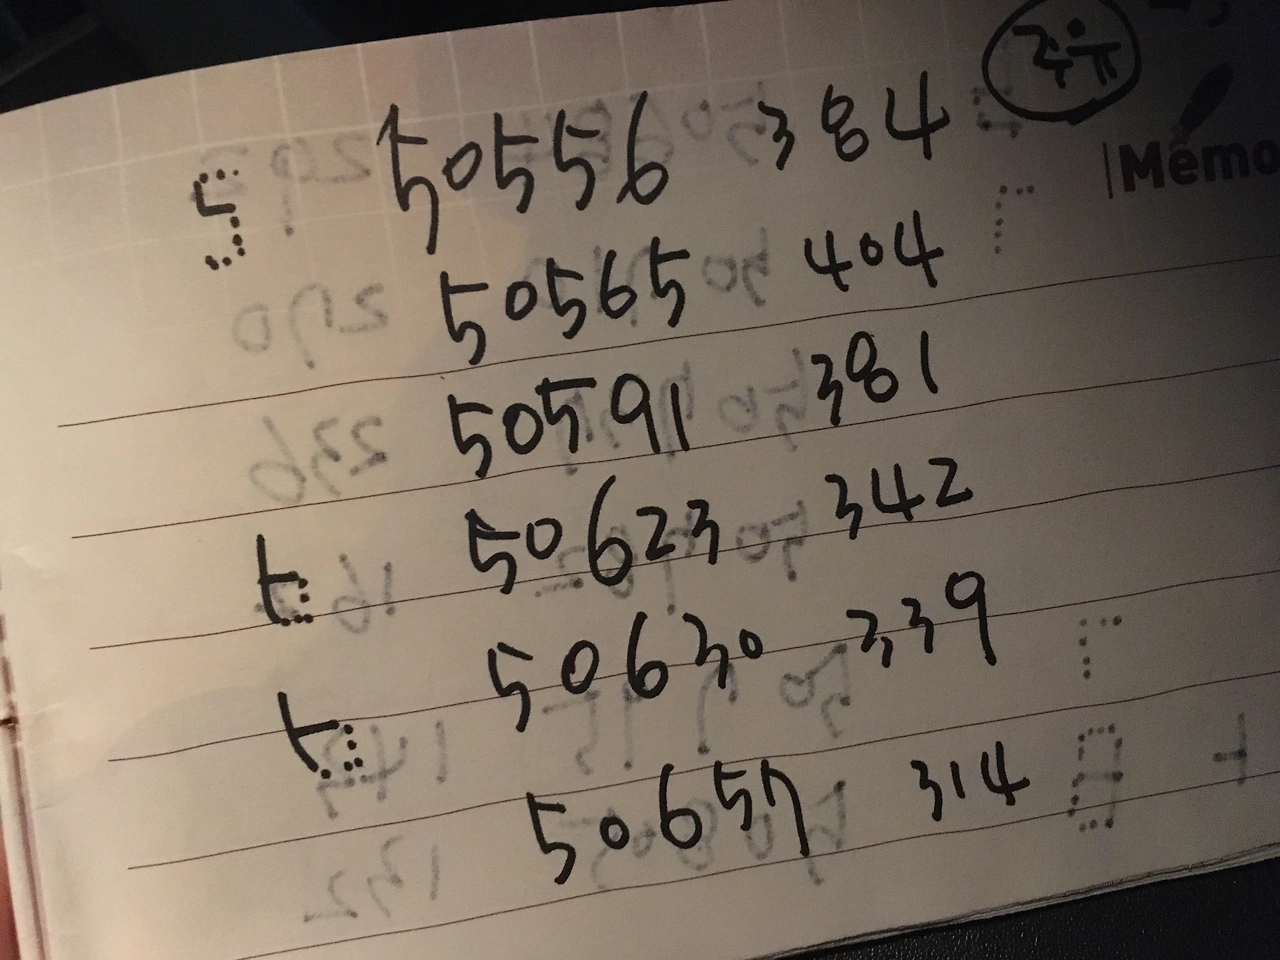 주유
Memo
50556 384
50565 404
50591 381
50623 342
50630 339
50657 314